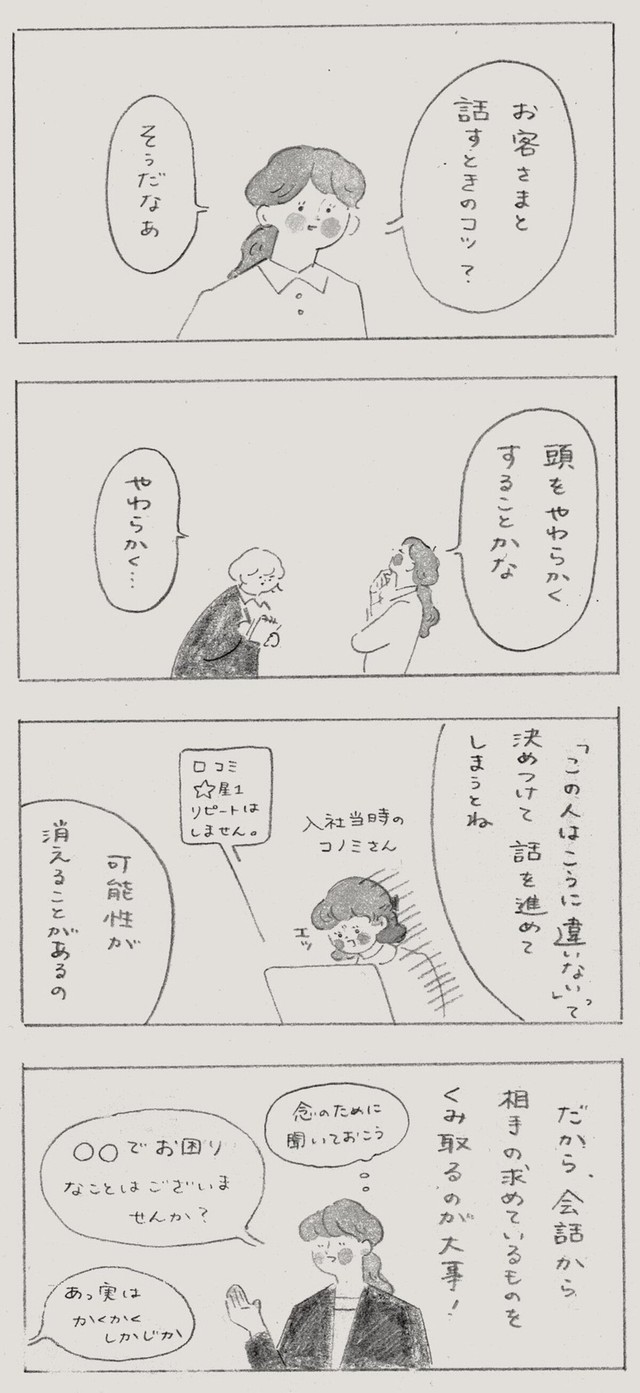 お客さまと
話すときのコツ？
そうだなあ
頭をやわらかく
することかな
やわらかく…
「この人はこうに違いない」って
決めつけて話を進めて
しまうとね
入社当時の
コノミさん
エッ
口コミ
☆星1
リピートは
しません。
可能性が
消えることがあるの
だから、会話から
相手の求めているものを
くみ取るのが大事！
念のために
聞いておこう
〇〇でお困り
なことはございま
せんか？
あっ実は
かくかく
しかじか